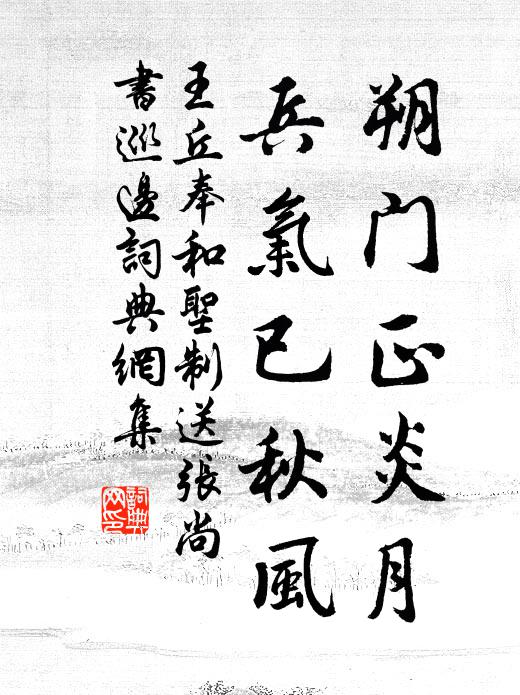 朔门正炎月
兵氣已秋風
王丘奉和聖制送張尚
書巡邊詞典網集
詞典网印